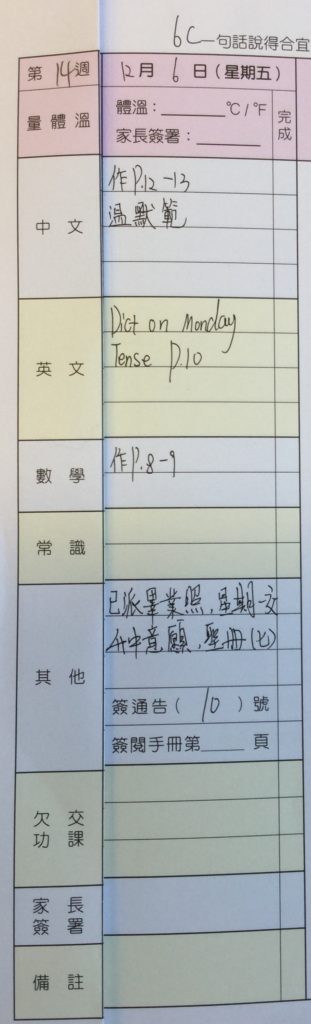 6C 一句話說得合宜
第 14 週 12 月 6 日(星期五)
量體溫 體溫：______ °C/°F 完成
家長簽署：______
中文 作P.12-13
溫默範
英文 Dict on Monday
Tense P.10
數學 作P.8-9
常識
其他 已派畢業照，星期一交
升中意願，聖冊(七)
簽通告( 10 )號
簽閱手冊第____頁
欠交功課
家長簽署
備註